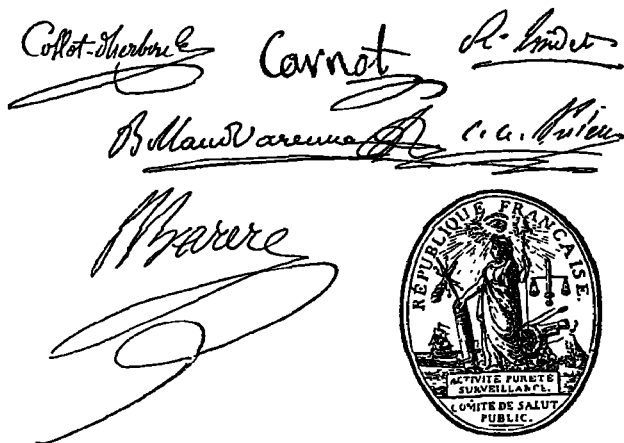 Collot-dherbois Carnot R. Lindet
Billaud Varenne C. A. Prieur
B Barere
RÉPUBLIQUE FRANCAISE.
ACTIVITÉ PURETÉ
SURVEILLANCE.
COMITÉ DE SALUT
PUBLIC.